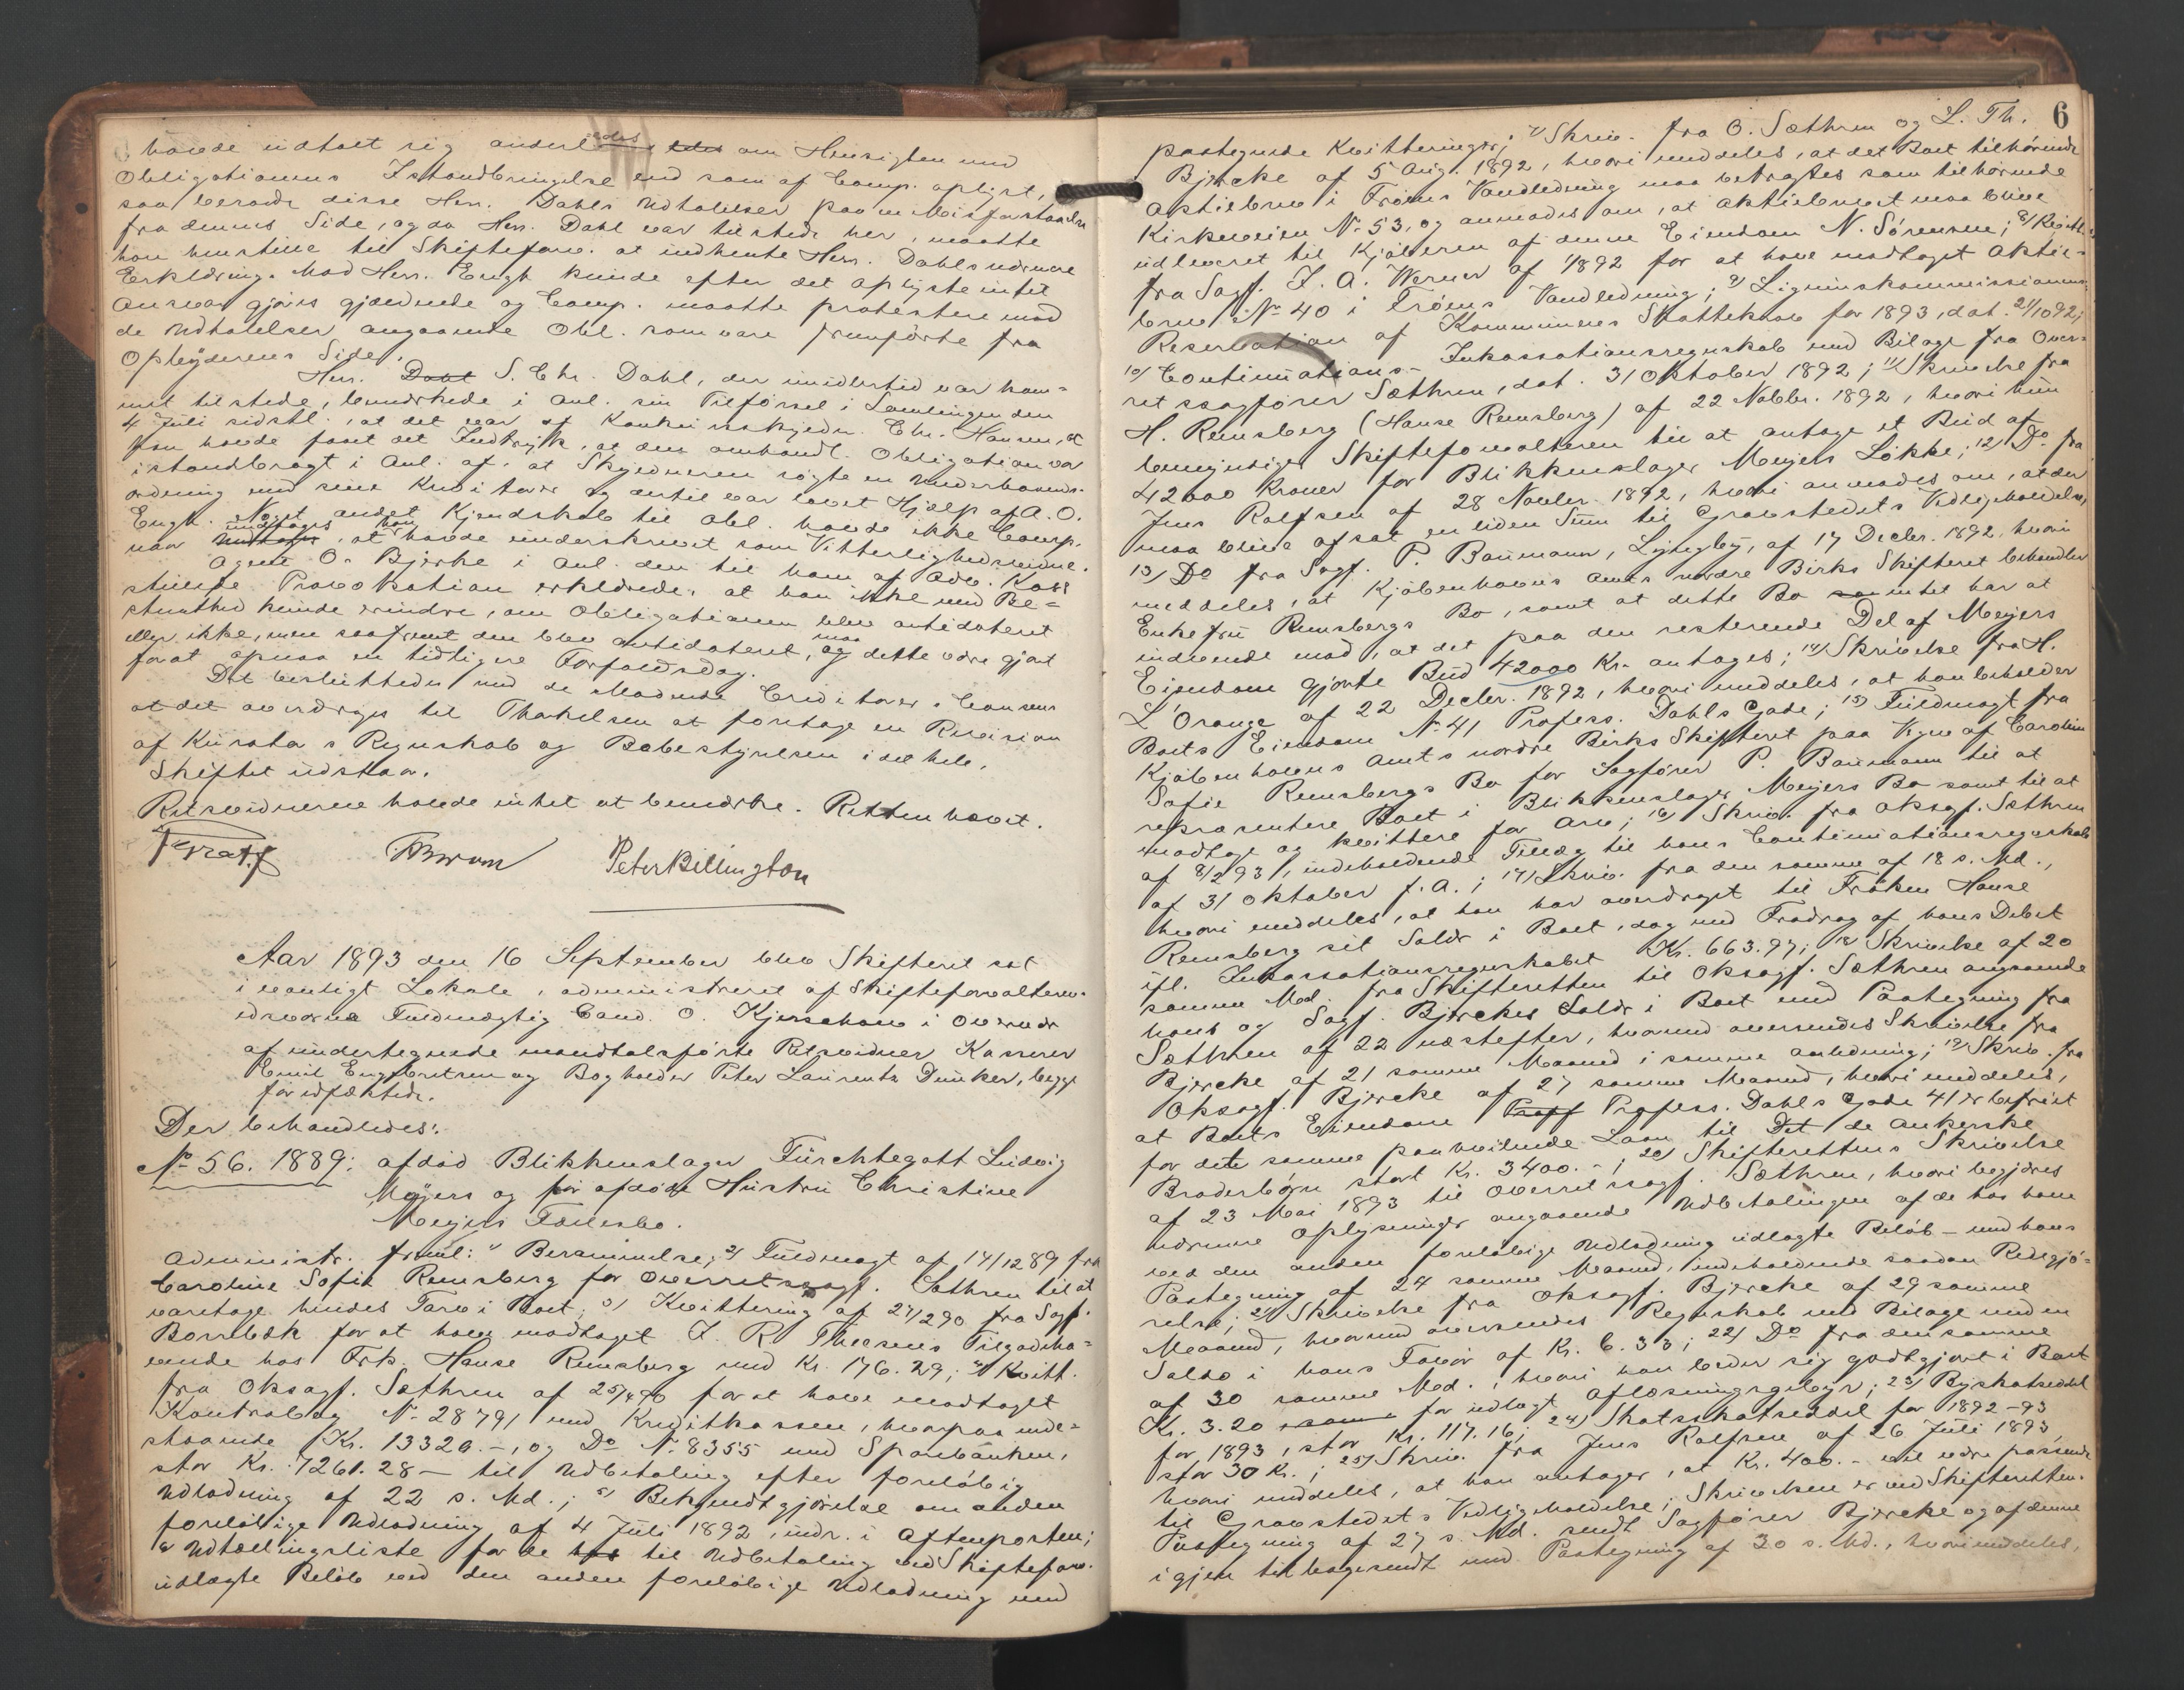 havde udtalt sig anderledes om Hensigten med
Obligationens Istandbringelse end som af Comp. oplyst,
saa beroede disse Hrr. Dahls Udtalelser paa en Misforstaaelse
fra dennes Side, og da Hrr. Dahl var tilstede her, maatte
han henstille til Skifteforv. at indhente Hrr. Dahls nærmere
Erklæring. Mod Hrr. Engh kunde efter det oplyste intet
Ansvar gjøres gjældende og Comp. maatte protestere mod
de Udtalelser angaaende Obl. som vare fremførte fra
Opbyderens Side.
Hrr. Dahl S. Chr. Dahl, der imidlertid var kom-
met tilstede, bemærkede i Anl. sin Tilførsel i Samlingen den
4 Juli sidstl., at det var af Konkursskyldn. Chr. Hansen, at
han havde faaet det Indtryk, at den omhandl. Obligation var
istandbragt i Anl. af, at Skyldneren søgte en Underhaands-
ordning med sine Kreditorer og dertil var lovet Hjælp af A. O.
Engh. Noget andet Kjendskab til Obl. havde ikke Comp.
naar undtages, at han havde underskrevet som Vitterlighedsvidne.
Agent O. Bjerke i Anl. den til ham af Adv. Koss
stillede Provokation erklærede, at han ikke med Be-
stemthed kunde erindre, om Obligationen blev antidateret
eller ikke, men saafremt den blev antidateret, maa og dette være gjort
for at opnaa en tidligere Forfaldsdag.
Det besluttedes med de Mødende Creditorers Consens
at det overdroges til Thorkelsen at foretage en Revision
af Kurators Regnskab og Bobestyrelsen i det hele.
Skiftet udstaar.
Retsvidnerne havde intet at bemærke. Retten hævet.
Peter Billington
Aar 1893 den 16 September blev Skifteret sat
i vanligt Lokale, administreret af Skifteforvalteren
edsvorne Fuldmægtig Cand. O. Kjerschow i Overvær
af undertegnede mandtalsførte Retsvidner Kasserer
Emil Engebretsen og Bogholder Peter Laurentz Dunker, begge
før edfæstede.
Der behandledes:
No 56. 1889: afdød Blikkenslager Fürchtegott Ludvig
Meyers og før afdøde Hustru Christine
Meyers Fællesbo.
Administr. freml: 1) Berammelse; 2) Fuldmagt af 14/12 89 fra
Caroline Sofie Remsberg for Overretssagf. Sæthren til at
varetage hendes Tarv i Boet; 3) Kvittering af 27/2 90 fra Sagf.
Bornbæk for at have modtaget J. R. Thuesens Tilgodeha-
vende hos Frk. Hanse Remsberg med Kr. 176.29; 4) Kvitt.
fra Oksagf. Sæthren af 25/4 90 for at have modtaget
Kontrabog No 28791 med Kreditkassen, hvorpaa inde-
staaende Kr. 13320.-, og Do No 8355 med Sparebanken,
stor Kr. 7261.28 - til Udbetaling efter foreløbig
Udlodning af 22 s. Md.; 5) Bekjendtgjørelse om anden
foreløbige Udlodning af 4 Juli 1892, indr. i Aftenposten;
6) Udtællingsliste for de til Udbetaling ved Skifteforv.
udlagte Beløb ved den anden foreløbige Udlodning med
6
paategnede Kvitteringer; 7) Skriv. fra O. Sæthren og L. Th.
Bjercke af 5 Aug. 1892, hvori meddeles, at det Boet tilhørende
Aktiebrev i Frøens Vandledning maa betragtes som tilhørende
Kirkeveien No 53, og anmodes om, at Aktiebrevet maa blive
udleveret til Kjøberen af denne Eiendom N. Sørensen; 8) Kvitt.
fra Sagf. J. A. Werner af 1892 for at have modtaget Aktie-
brev No 40 i Frøens Vandledning; 9) Ligningskommissionens
Reservation af Kommunens Skattekrav for 1893, dat. 21/10 92;
10) Continuations- Inkassationsregnskab med Bilage fra Over-
retssagfører Sæthren, dat. 31 Oktober 1892; 11) Skrivelse fra
H. Remsberg (Hanse Remsberg) af 22 Novbr. 1892, hvori hun
bemyndiger Skifteforvalteren til at antage et Bud af
42000 Kroner for Blikkenslager Meyers Løkke; 12) Do fra
Jens Rolfsen af 28 Novbr. 1892, hvori anmodes om, at der
maa blive afsat en liden Sum til Gravstedets Vedligeholdelse;
13) Do fra Sagf. P. Baumann, Lyngby, af 17 Decbr. 1892, hvori
meddeles, at Kjøbenhavns Amts nordre Birks Skifteret behandler
Enkefru Remsbergs Bo, samt at dette Bo intet har at
indvende mod, at det paa den resterende Del af Meyers
Eiendom gjorte Bud 42000 Kr. antages; 14) Skrivelse fra H.
L'Orange af 22 Decbr. 1892, hvori meddeles, at han beholder
Boets Eiendom No 41 Profess. Dahls Gade; 15) Fuldmagt fra
Kjøbenhavns Amts nordre Birks Skifteret paa Vegne af Caroline
Sofie Remsbergs Bo for Sagfører P. Baumann til at
repræsentere Boet i Blikkenslager Meyers Bo samt til at
modtage og kvittere for Arv; 16) Skriv. fra Oksagf. Sæthren
af 8/2 93, indeholdende Tillæg til hans Continuationsregnskab
af 31 Oktober f. A.; 17) Skriv. fra den samme af 18 s. Md.,
hvori meddeles, at han har overdraget til Frøken Hanse
Remsberg sit Saldo i Boet, dog med Fradrag af hans Debet
ifl. Inkassationsregnskabet Kr. 663.97; 18) Skrivelse af 20
samme Md. fra Skifteretten til Oksagf. Sæthren angaaende
hans og Sagf. Bjerckes Saldo i Boet med Paategning fra
Sæthren af 22 næstefter, hvormed oversendes Skrivelse fra
Bjercke af 21 samme Maaned i samme Anledning; 19) Skriv. fra
Oksagf. Bjercke af 27 samme Maaned, hvori meddeles,
at Boets Eiendom Profess. Dahls Gade 41 er befriet
for dette samme paahvilende Laan til Det de Ankerske
Broderbørn stort Kr. 3400.-; 20) Skifterettens Skrivelse
af 23 Mai 1893 til Overretssagf. Sæthren, hvori begjæres
nærmere Oplysninger angaaende Udbetalingen af de hos ham
ved den anden foreløbige Udlodning udlagte Beløb - med hans
Paategning af 24 samme Maaned, indeholdende saadan Redegjø-
relse; 21) Skrivelse fra Oksagf. Bjercke af 29 samme
Maaned, hvormed oversendes Regnskab med Bilage med en
Saldo i hans Favør af Kr. 6.33; 22) Do fra den samme
af 30 samme Md., hvori han beder sig godtgjort i Boet
Kr. 3.20 for udlagt Aflæsningsgebyr; 23) Byskatseddel
for 1893, stor Kr. 117.16; 24) Skatsskatseddel for 1892-93
stor 30 Kr.; 25) Skriv. fra Jens Rolfsen af 26 Juli 1893,
hvori meddeles, at han antager, at Kr. 400.- vil være passende
til Gravstedets Vedligeholdelse; Skrivelsen er ved Skifterettens
Paategning af 27 s. Md. sendt Sagfører Bjercke og af denne
igjen tilbagesendt med Paategning af 30 s. Md., hvori meddeles,